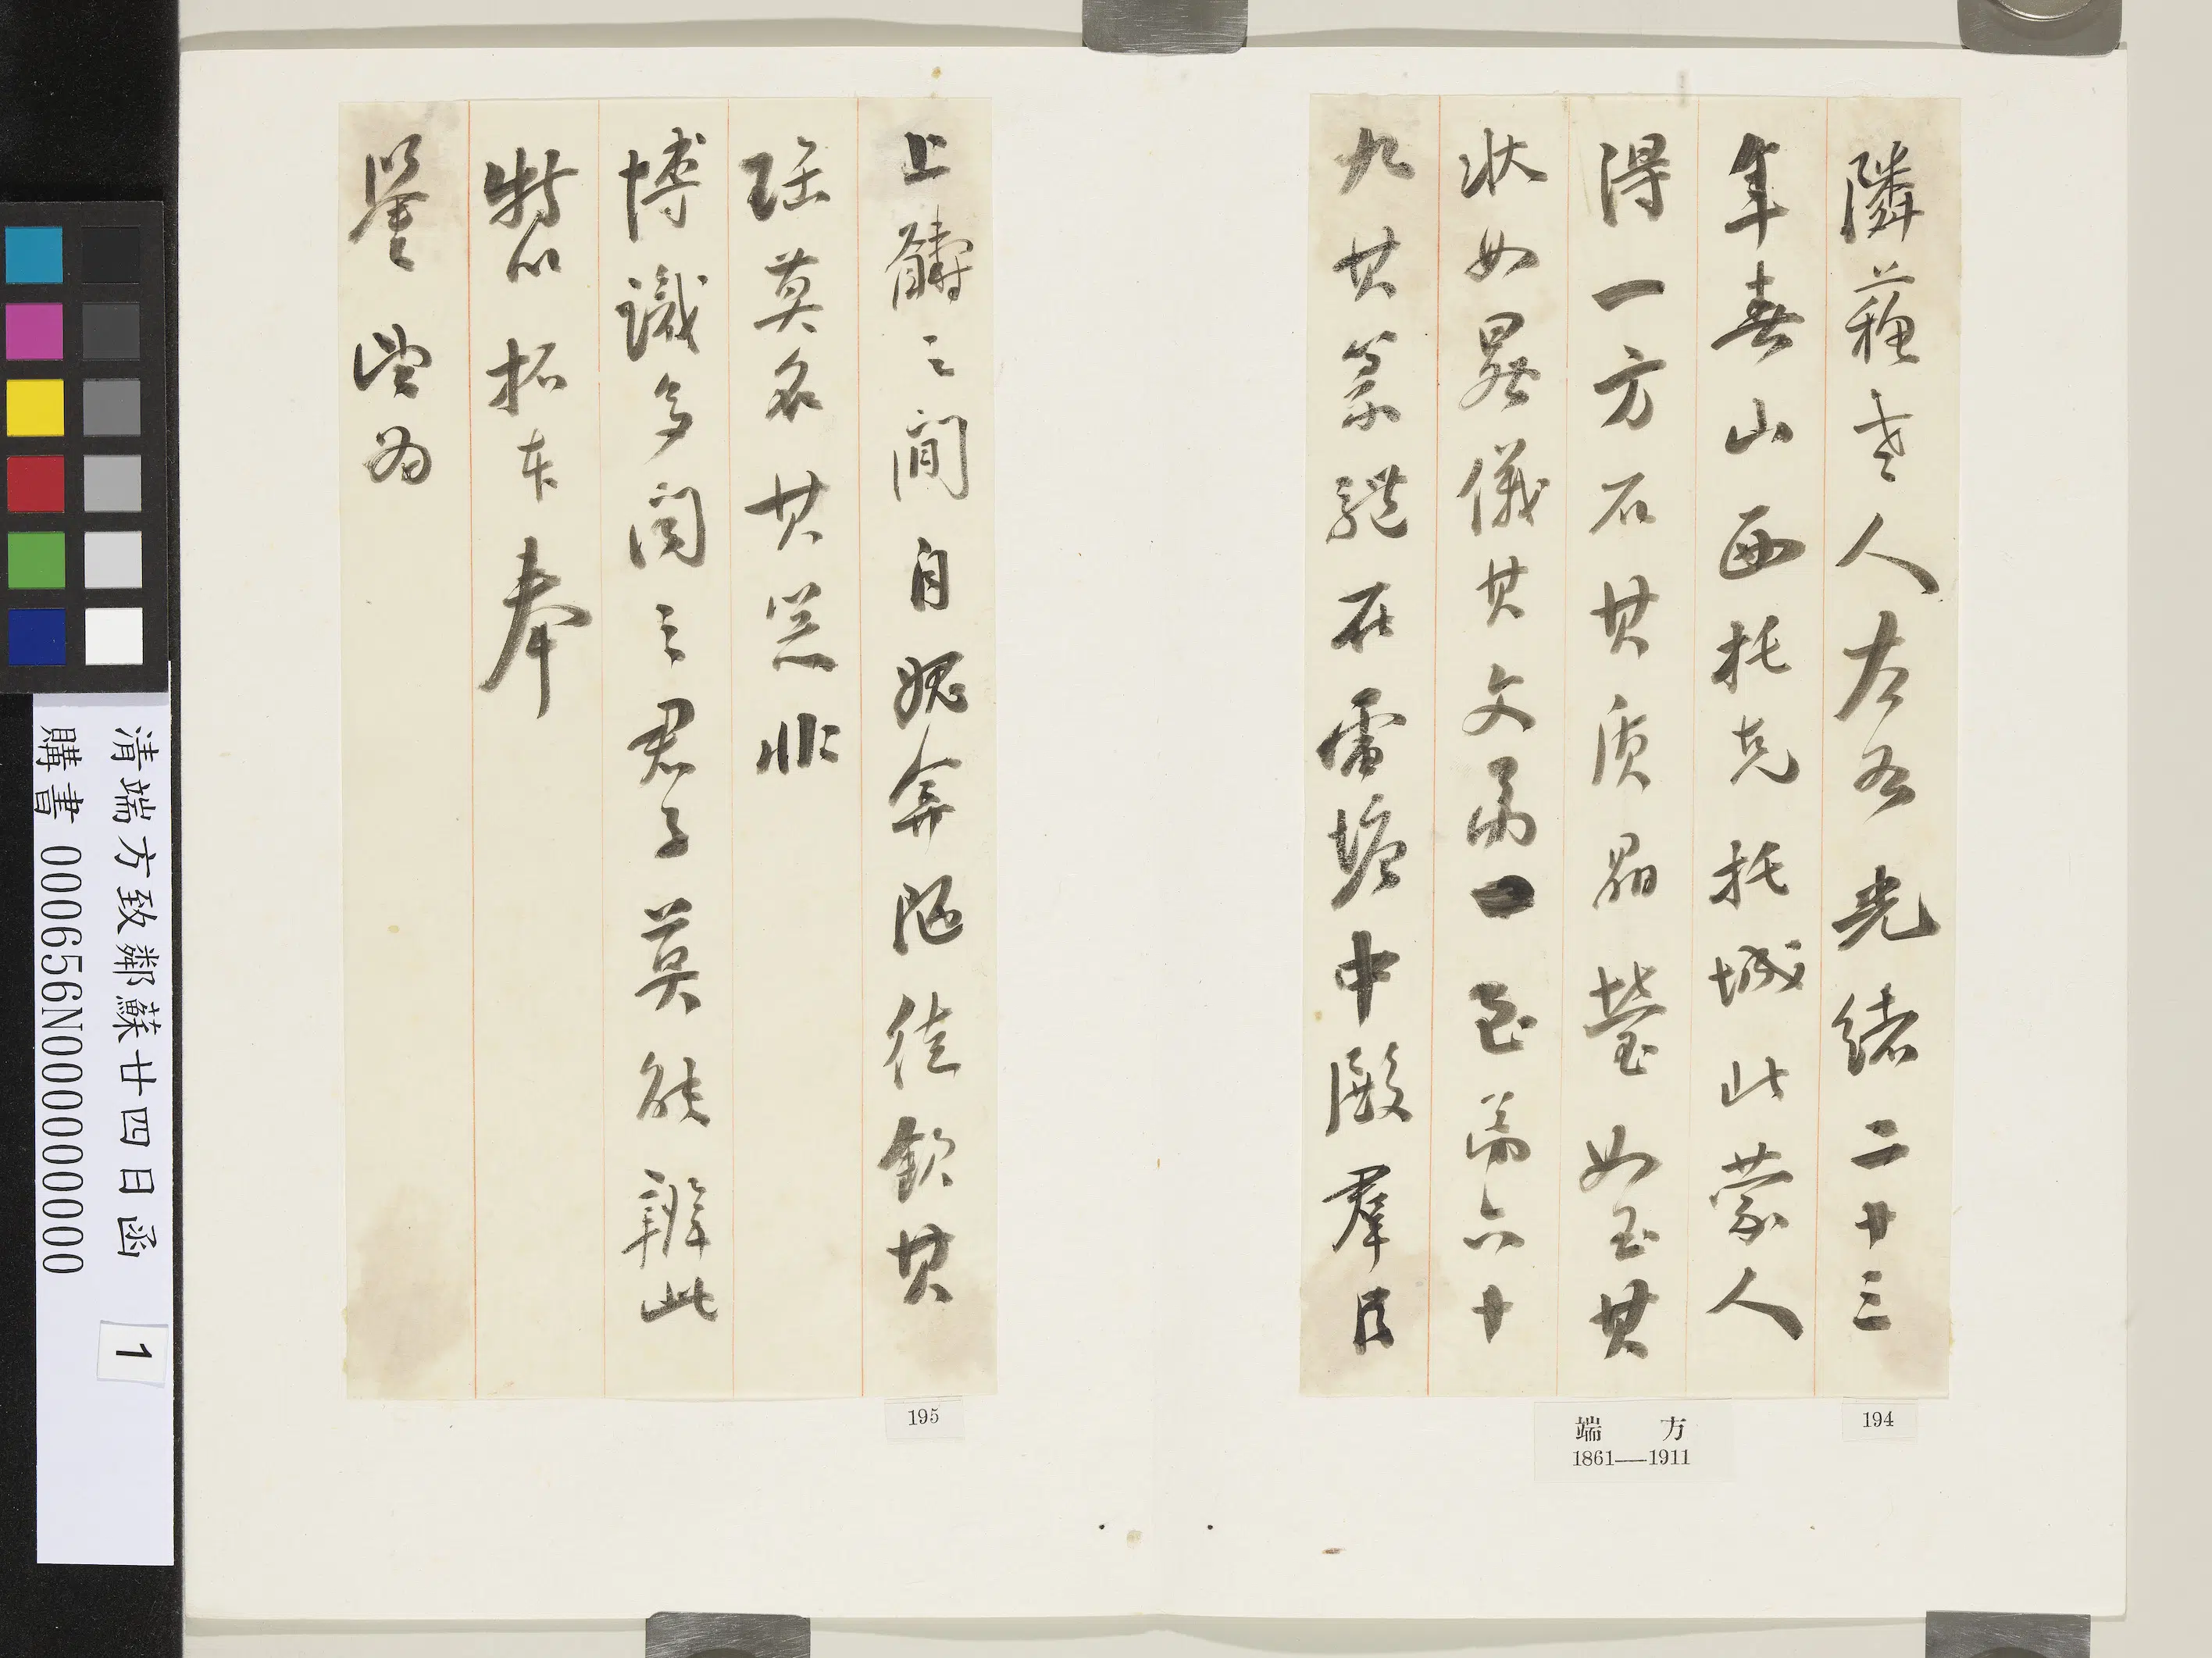 隣蘓老人左右光緒二十三
年春山西托克托城此蒙人
得一方石其质晶瑩如玉其
狀如晷儀其文第一至第六十
九其篆體在雷塘中殿羣臣
上醻之間自媿弇陋徒欽其
瑶莫名其器非
博識多聞之君子莫能辨此
特以拓本奉
鑒當为
194
端方
1861—1911
195
清端方致鄰蘇廿四日函 1
購書 000656N000000000